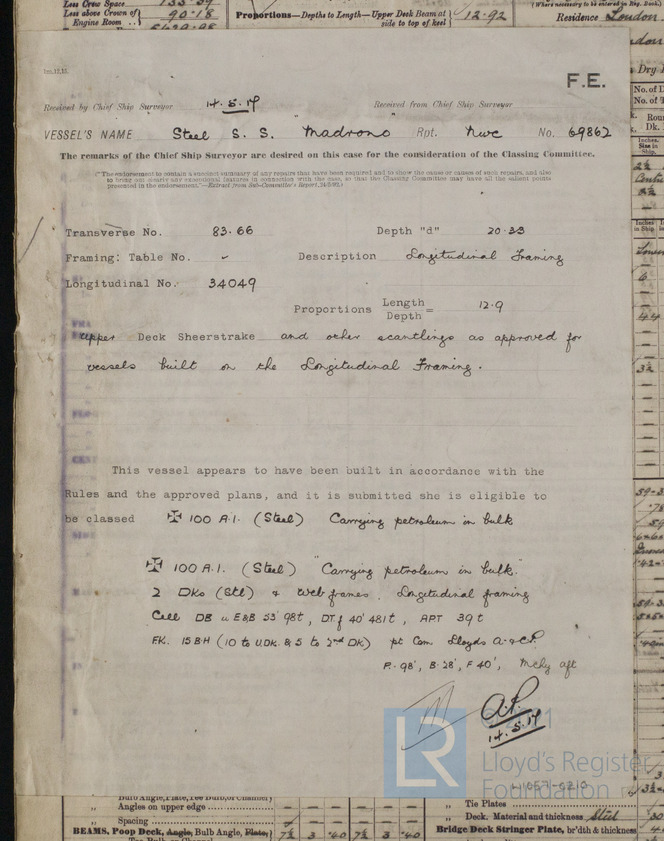 Less Crew Space
Less above Crown of
Engine Room
90.18
Proportions—Depths to Length—Upper Deck Beam at
side to top of keel
12.92
(Where necessary to be entered in Reg. Book.)
Residence London
F.E.
Received by Chief Ship Surveyor 14.5.17 Received from Chief Ship Surveyor
VESSEL'S NAME Steel S.S. "Madrono Rpt. Nwc No. 69862
The remarks of the Chief Ship Surveyor are desired on this case for the consideration of the Classing Committee.
("The endorsement to contain a succinct summary of any repairs that have been required and to show the cause or causes of such repairs, and also
to bring out clearly any exceptional features in connection with the case, so that the Classing Committee may have all the salient points
presented in the endorsement."—Extract from Sub-Committee's Report,
Transverse No. 83.66 Depth "d" 20.33
Framing: Table No. Description Longitudinal Framing
Longitudinal No. 34049
Proportions Length
Depth = 12.9
Upper Deck Sheerstrake and other scantlings as approved for
vessels built on the Longitudinal Framing.
This vessel appears to have been built in accordance with the
Rules and the approved plans, and it is submitted she is eligible to
be classed ✠ 100 A.1. (Steel) Carrying petroleum in bulk
✠ 100 A.1. (Steel) "Carrying petroleum in bulk."
2 Dks (Stl) & Web frames, Longitudinal framing
Cell DB u E&B 53' 98t, DTf 40' 481t, APT 39t
FK. 15 BH (10 to U.Dk. & 5 to 2nd Dk) pt Cem. Lloyds A & CP
P. 98', B. 28', F 40', Mchy aft
A.P.
14.5.17
LR
Lloyd's Register
Foundation
Bulb Angle, Plate, Tee Bulb, or Channel
" Angles on upper edge
" Spacing
BEAMS, Poop Deck, Angle, Bulb Angle, Plate, 7½ 3 .40 7½ 3 .40
" Tie Plates
" Deck. Material and thickness Steel
Bridge Deck Stringer Plate, br'dth & thickness